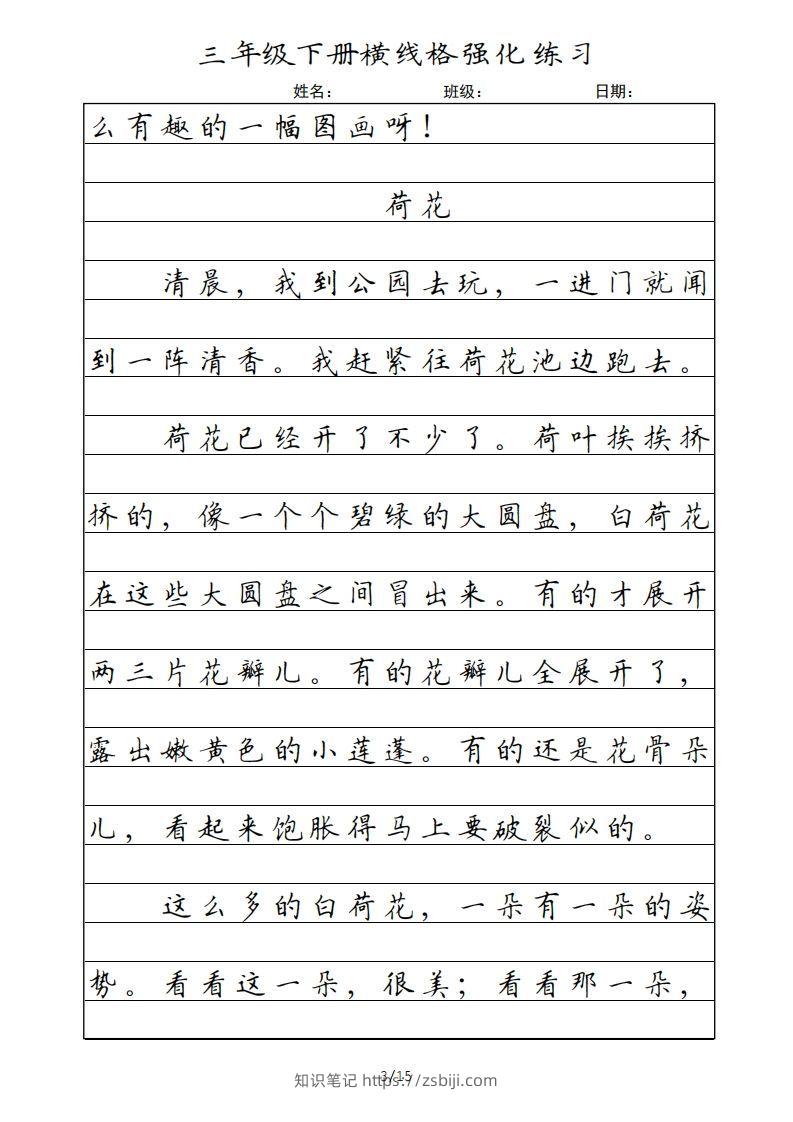 三年级下册横线格强化练习
姓名： 班级： 日期：
么有趣的一幅图画呀！
荷花
清晨，我到公园去玩，一进门就闻
到一阵清香。我赶紧往荷花池边跑去。
荷花已经开了不少了。荷叶挨挨挤
挤的，像一个个碧绿的大圆盘，白荷花
在这些大圆盘之间冒出来。有的才展开
两三片花瓣儿。有的花瓣儿全展开了，
露出嫩黄色的小莲蓬。有的还是花骨朵
儿，看起来饱胀得马上要破裂似的。
这么多的白荷花，一朵有一朵的姿
势。看看这一朵，很美；看看那一朵，
3/15
知识笔记 https://zsbiji.com